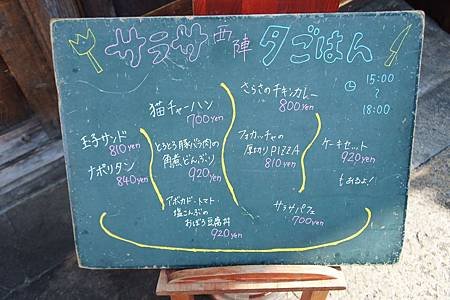 サラサ西陣 夕ごはん
15:00
〜
18:00
猫チャーハン
700yen
さらさのチキンカレー
800yen
玉子サンド
810yen
ナポリタン
840yen
とろとろ豚バラ肉の
角煮どんぶり
920yen
フォカッチャの
厚切りPIZZA
810yen
ケーキセット
920yen
もあるよ!
アボカド・トマト・
塩こんぶの
おぼろ豆腐丼
920yen
サラサパフェ
700yen